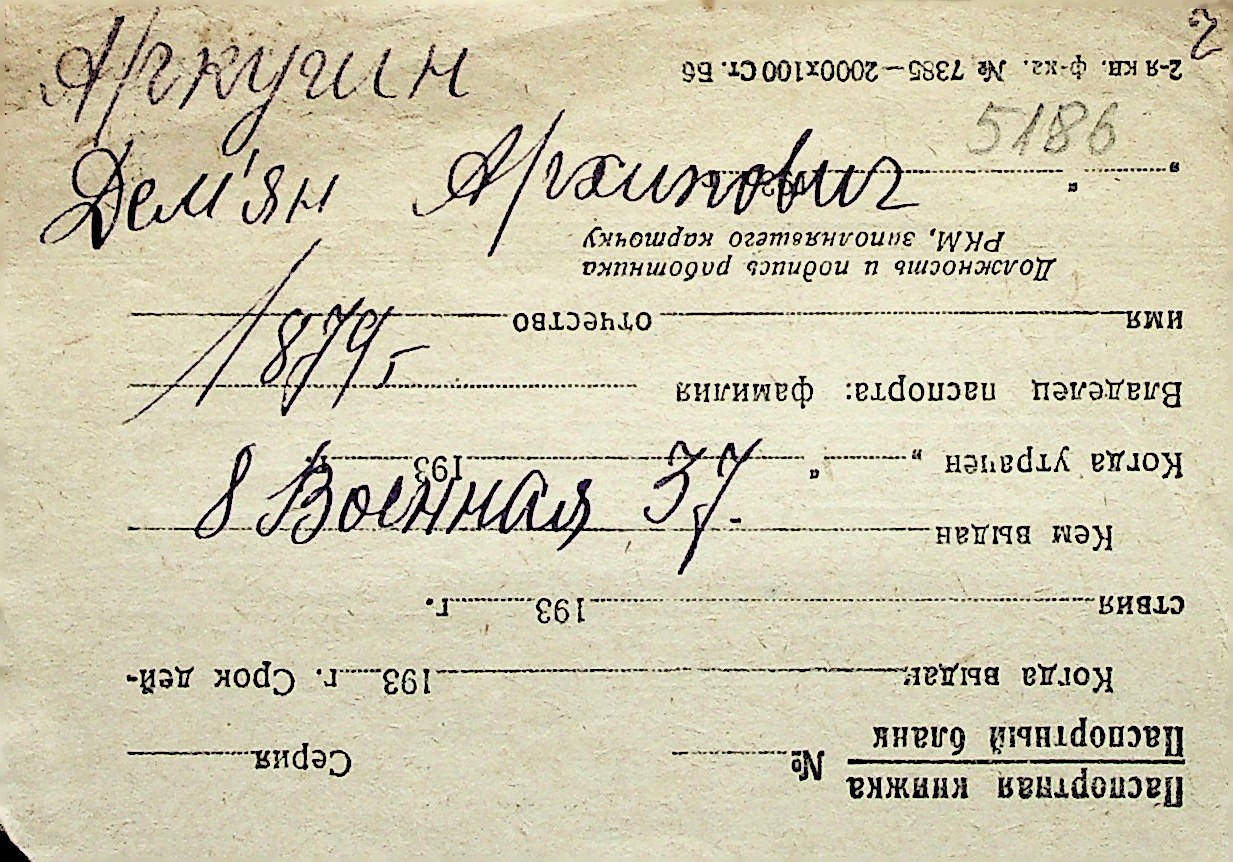 Аркугин
Дем'ян Архипович
1879 г
8 Военная 37.
5186
2
Паспортная книжка
Паспортный бланк
№ Серия
Когда выдан 193 г. Срок дей-
ствия 193 г.
Кем выдан
Когда утрачен „ " 193 г.
Владелец паспорта: фамилия
имя отчество
Должность и подпись работника
РКМ, заполнявшего карточку
„ "
2-я кв. ф-ка. № 7385—2000х100 Ст. Б6